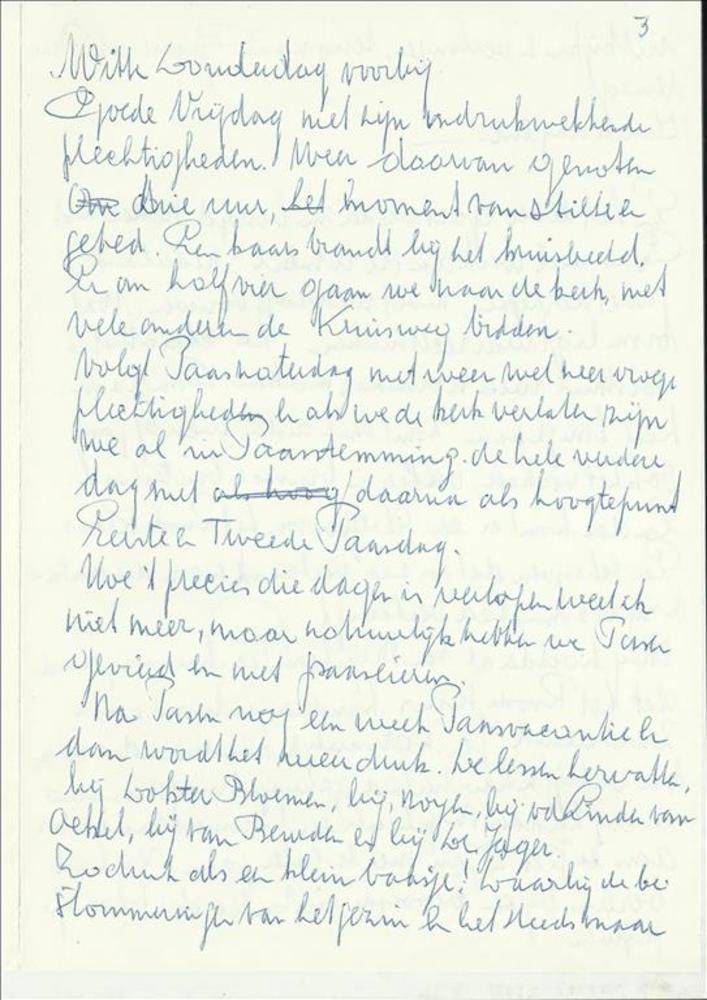 3
Witte Donderdag voorbij
Goede Vrijdag met zijn indrukwekkende
plechtigheden. Weer daarvan genoten
Om drie uur, het moment van stilte en
gebed. Een kaars brandt bij het kruisbeeld.
En om half vier gaan we naar de kerk, met
vele anderen de Kruisweg bidden.
Volgt Paaszaterdag met weer wel zeer vroege
plechtigheden en als we de kerk verlaten zijn
we al in Paasstemming. de hele verdere
dag met als hoog daarna als hoogtepunt
Eerste en Tweede Paasdag.
Hoe 't precies die dagen is verlopen weet ik
niet meer, maar natuurlijk hebben we Pasen
gevierd en met paaseieren.
Na Pasen nog een week Paasvacantie en
dan wordt het weer druk. De lessen hervatten,
bij Dokter Bloemen, bij, bij vd Einden van
Ockel, bij van en bij De Jager.
Zo druk als een klein baasje! Waarbij de be
slommeringen van het gezin en het steeds maar